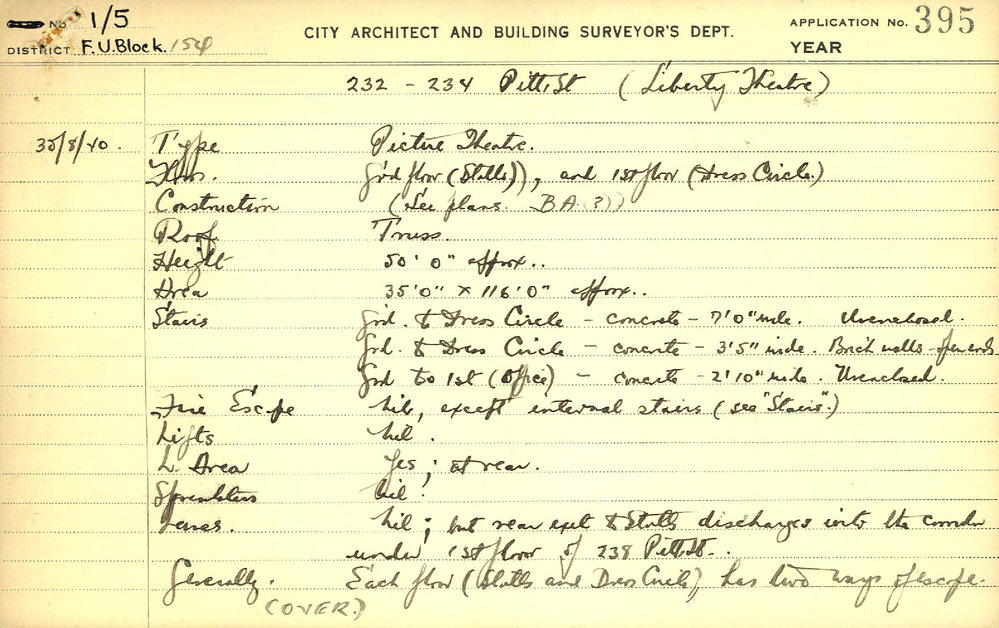 No 1/5
CITY ARCHITECT AND BUILDING SURVEYOR'S DEPT.
APPLICATION No. 395
DISTRICT F.U.Block. 154
YEAR
232 - 234 Pitt St (Liberty Theatre)
30/8/40. Type Picture Theatre.
Floors. Grd floor (Stalls), and 1st floor (Dress Circle.)
Construction (See plans. BA (?))
Roof Truss.
Height 50' 0" approx..
Area 35'0" x 116'0" approx..
Stairs Grd. to Dress Circle - concrete - 7'0" wide. Unenclosed.
Grd. to Dress Circle - concrete - 3'5" wide. Brick walls - open ends
Grd to 1st (Office) - concrete - 2'10" wide. Unenclosed.
Fire Escape Nil, except internal stairs (see "Stairs".)
Lifts Nil.
L. Area Yes; at rear.
Sprinklers Nil.
Nil; but rear exit to Stalls discharges into the corridor
under 1st floor of 238 Pitt St..
Generally. Each floor (Stalls and Dress Circle), has two ways of escape.
(OVER.)